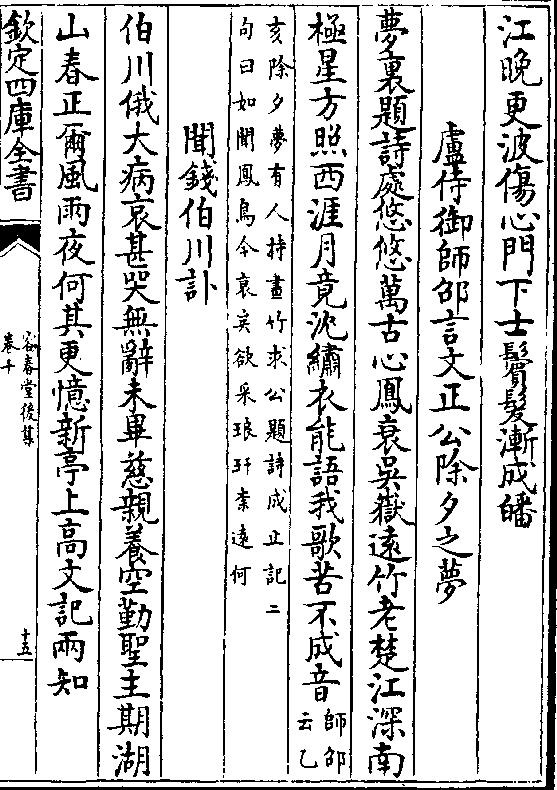 江晚更波傷心門下士鬢髮漸成皤
盧侍御師邵言文正公除夕之夢
夢裏題詩處悠悠萬古心鳳衰吳嶽遠竹老楚江深南
極星方照西涯月竟沈繡衣能語我歌苦不成音師邵
云乙
亥除夕夢有人持畫竹求公題詩成止記二
句曰如聞鳳鳥今衰矣欲采琅玕柰遠何
聞錢伯川訃
伯川俄大病哀甚哭無辭未畢慈親養空勤聖主期湖
山春正爾風雨夜何其更憶新亭上高文記兩知
欽定四庫全書
容春堂後集
卷十
十五